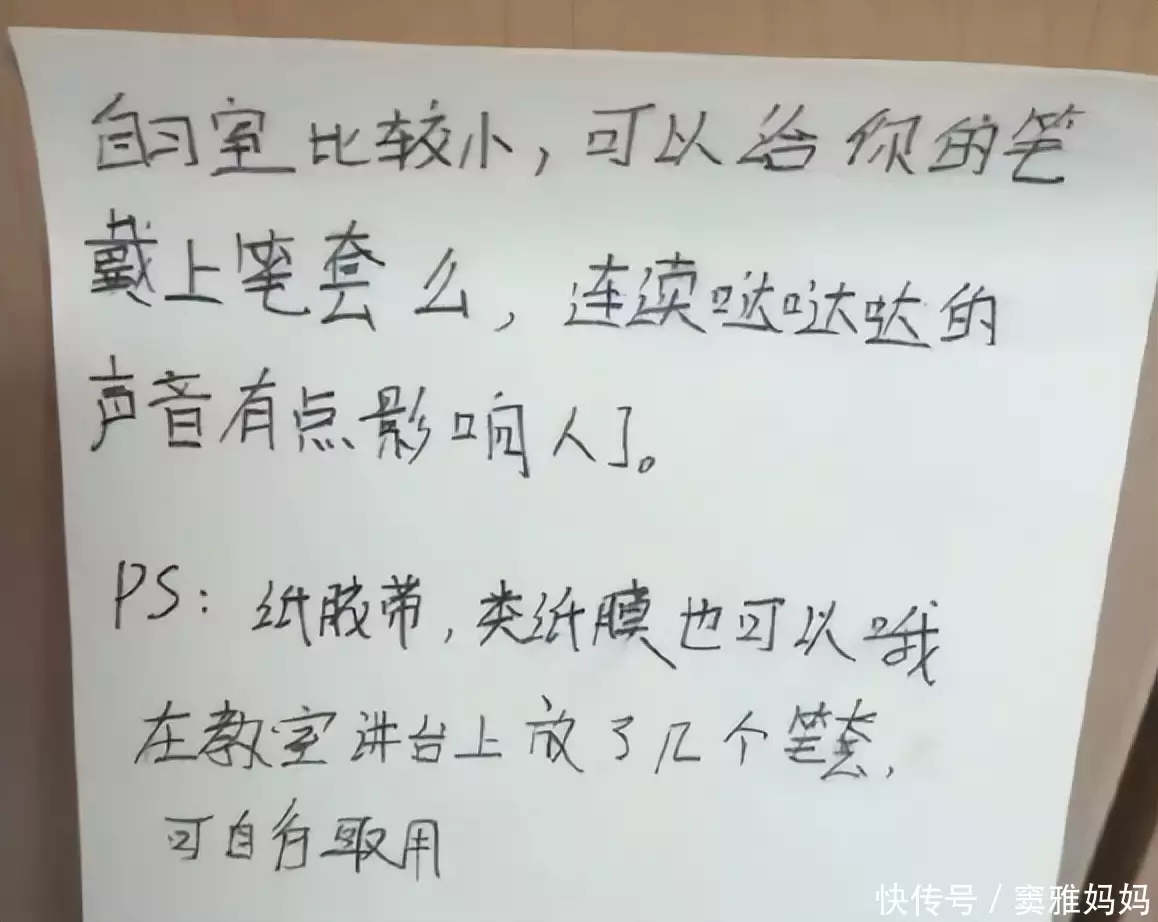 自习室比较小，可以给你的笔
戴上笔套么，连续哒哒哒的
声音有点影响人了。
PS：纸胶带，类纸膜也可以哦
在教室讲台上放了几个笔套，
可自行取用
快传号／窦雅妈妈